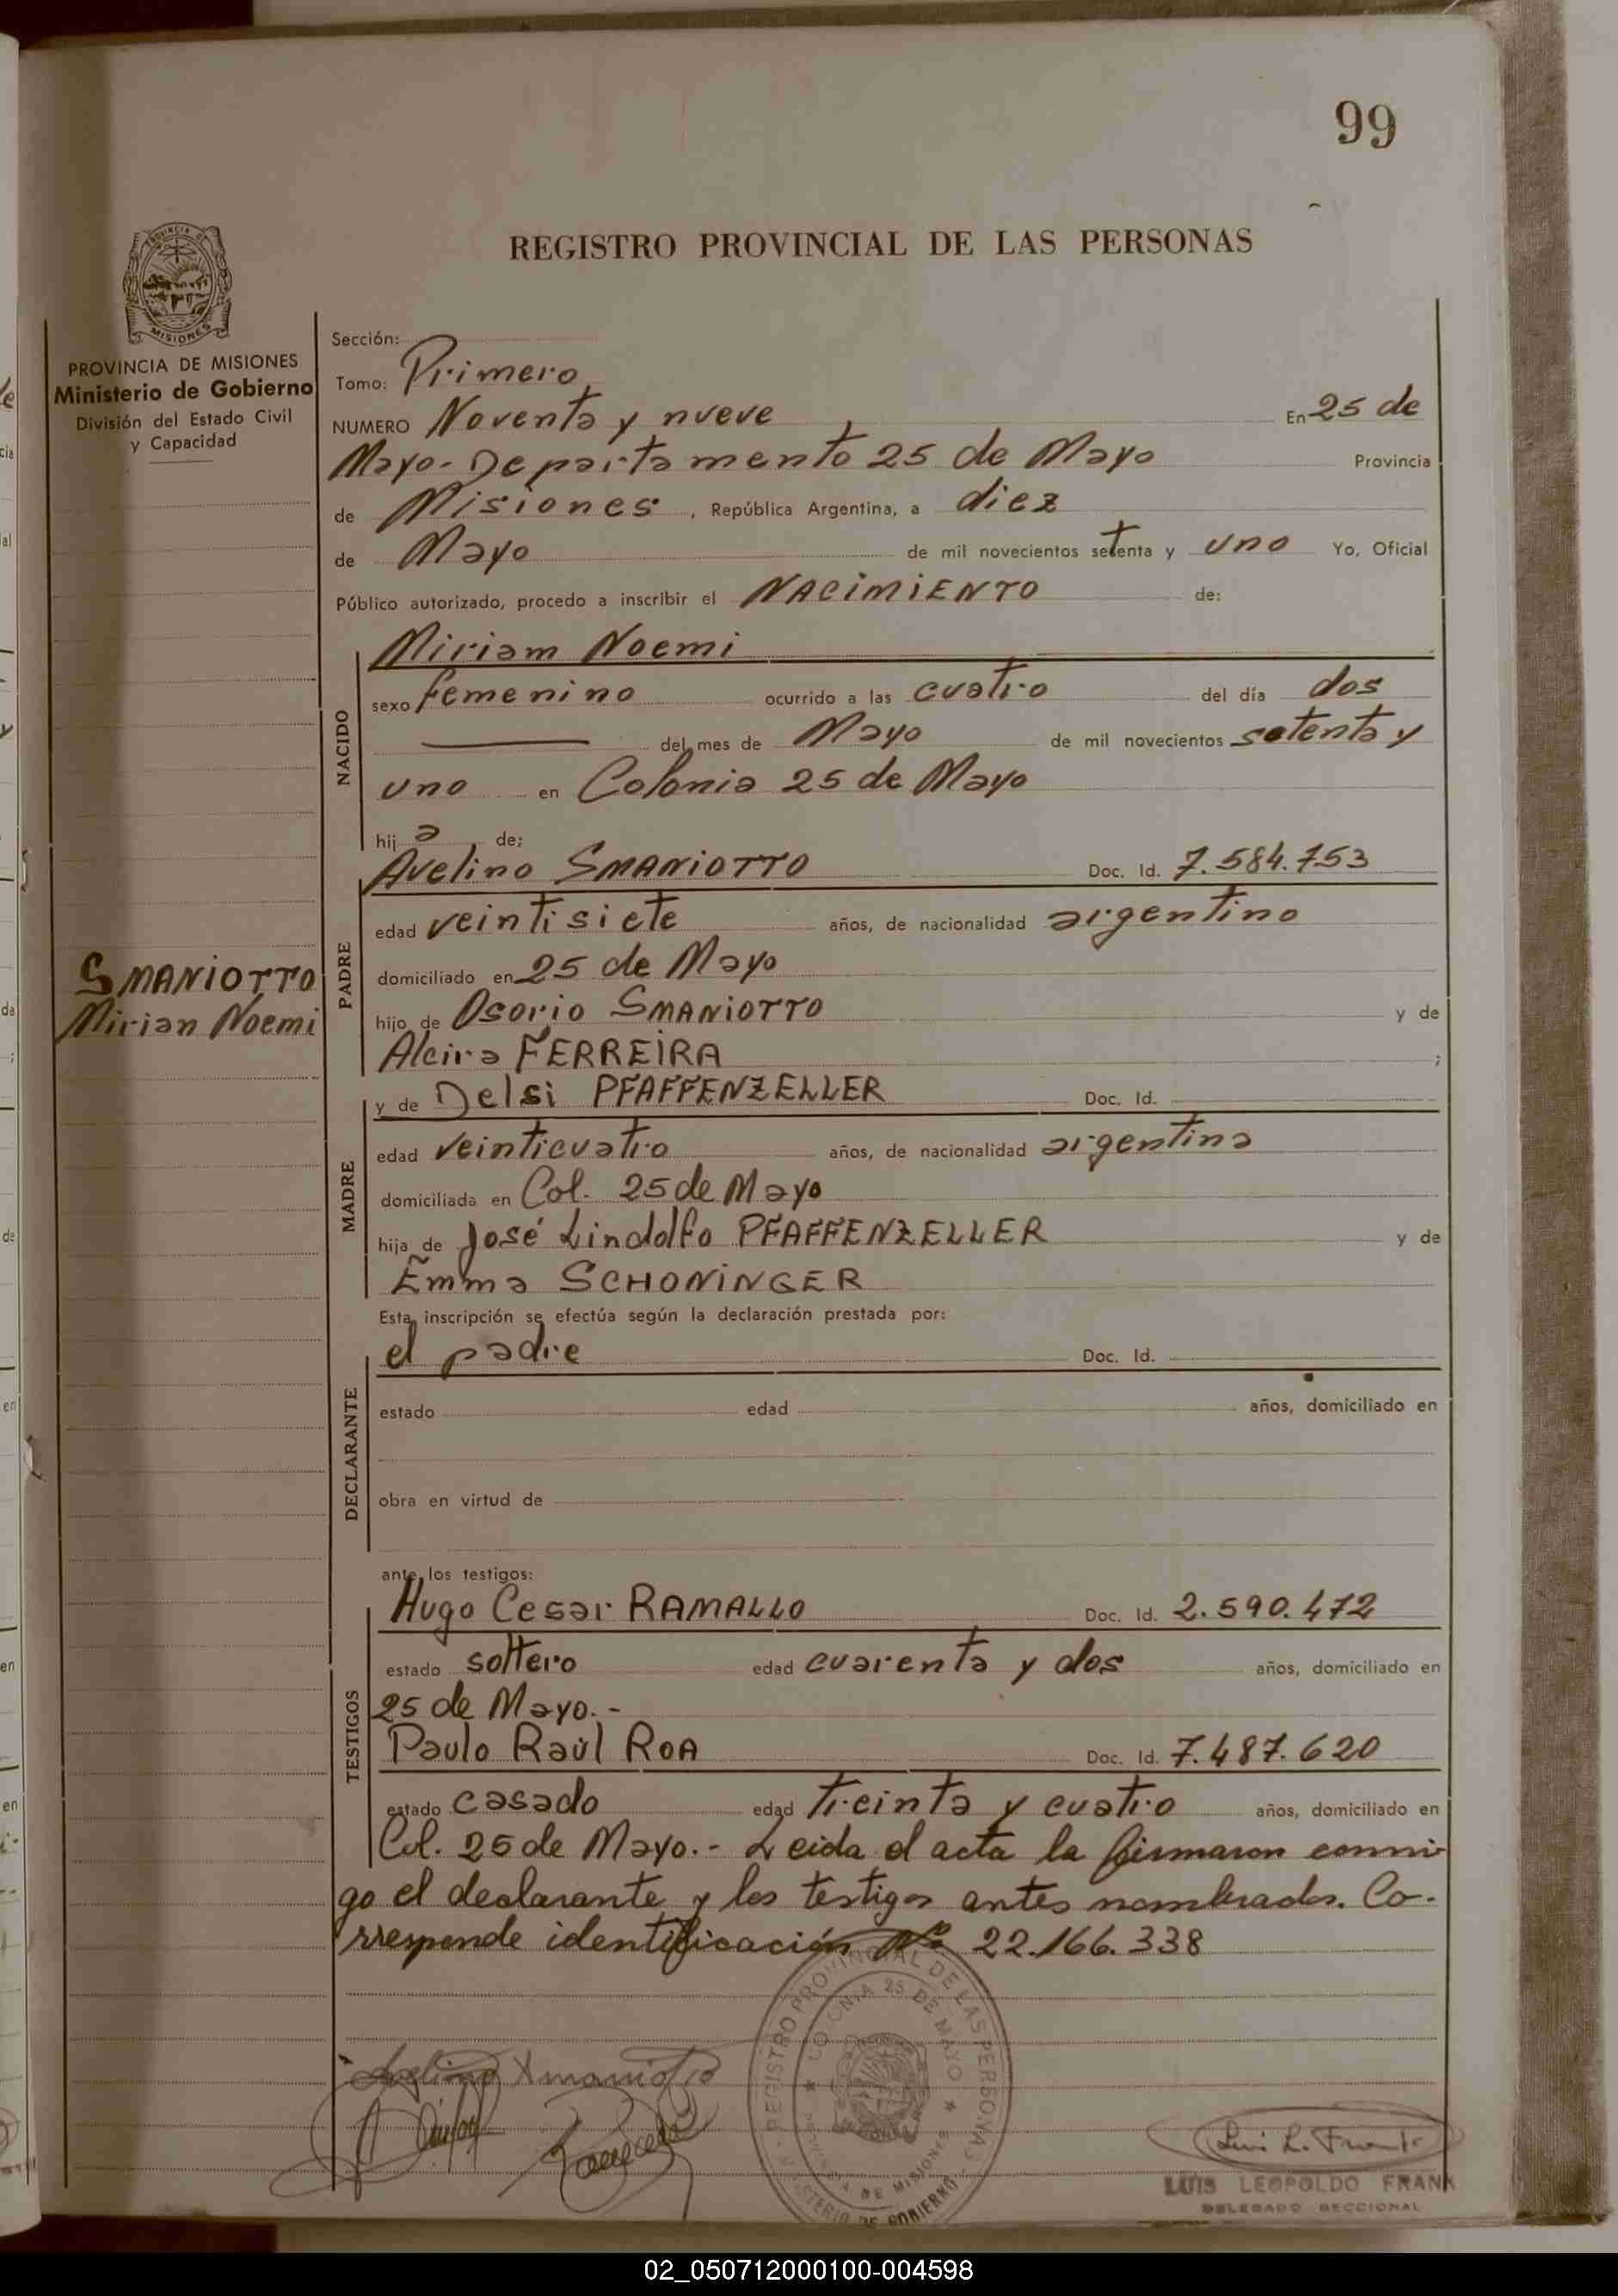 99
REGISTRO PROVINCIAL DE LAS PERSONAS
PROVINCIA DE
MISIONES
PROVINCIA DE MISIONES
Ministerio de Gobierno
División del Estado Civil
y Capacidad
SMANIOTTO
Mirian Noemi
Sección:
Tomo: Primero
NUMERO Noventa y nueve En 25 de
Mayo - Departamento 25 de Mayo Provincia
de Misiones, República Argentina, a diez
de Mayo de mil novecientos setenta y uno Yo, Oficial
Público autorizado, procedo a inscribir el NACIMIENTO de:
NACIDO
Miriam Noemi
sexo femenino ocurrido a las cuatro del día dos
del mes de Mayo de mil novecientos setenta y
uno en Colonia 25 de Mayo
hija de;
PADRE
Avelino SMANIOTTO Doc. Id. 7.584.753
edad veintisiete años, de nacionalidad argentino
domiciliado en 25 de Mayo
hijo de Osorio SMANIOTTO y de
Alcira FERREIRA ;
MADRE
y de Delsi PFAFFENZELLER Doc. Id.
edad veinticuatro años, de nacionalidad argentina
domiciliada en Col. 25 de Mayo
hija de José Lindolfo PFAFFENZELLER y de
Emma SCHONINGER
Esta inscripción se efectúa según la declaración prestada por:
DECLARANTE
el padre Doc. Id.
estado edad años, domiciliado en
obra en virtud de
ante los testigos:
TESTIGOS
Hugo Cesar RAMALLO Doc. Id. 2.590.472
estado soltero edad cuarenta y dos años, domiciliado en
25 de Mayo.-
Paulo Raúl ROA Doc. Id. 7.487.620
estado casado edad treinta y cuatro años, domiciliado en
Col. 25 de Mayo.- Leida el acta la firmaron conmi-
go el declarante y los testigos antes nombrados. Co-
rresponde identificación Nº 22.166.338
REGISTRO PROVINCIAL DE LAS PERSONAS
COLONIA 25 DE MAYO
PROVINCIA DE MISIONES
MINISTERIO DE GOBIERNO
Avelino Xmaniotto
LUIS LEOPOLDO FRANK
DELEGADO SECCIONAL
02_050712000100-004598